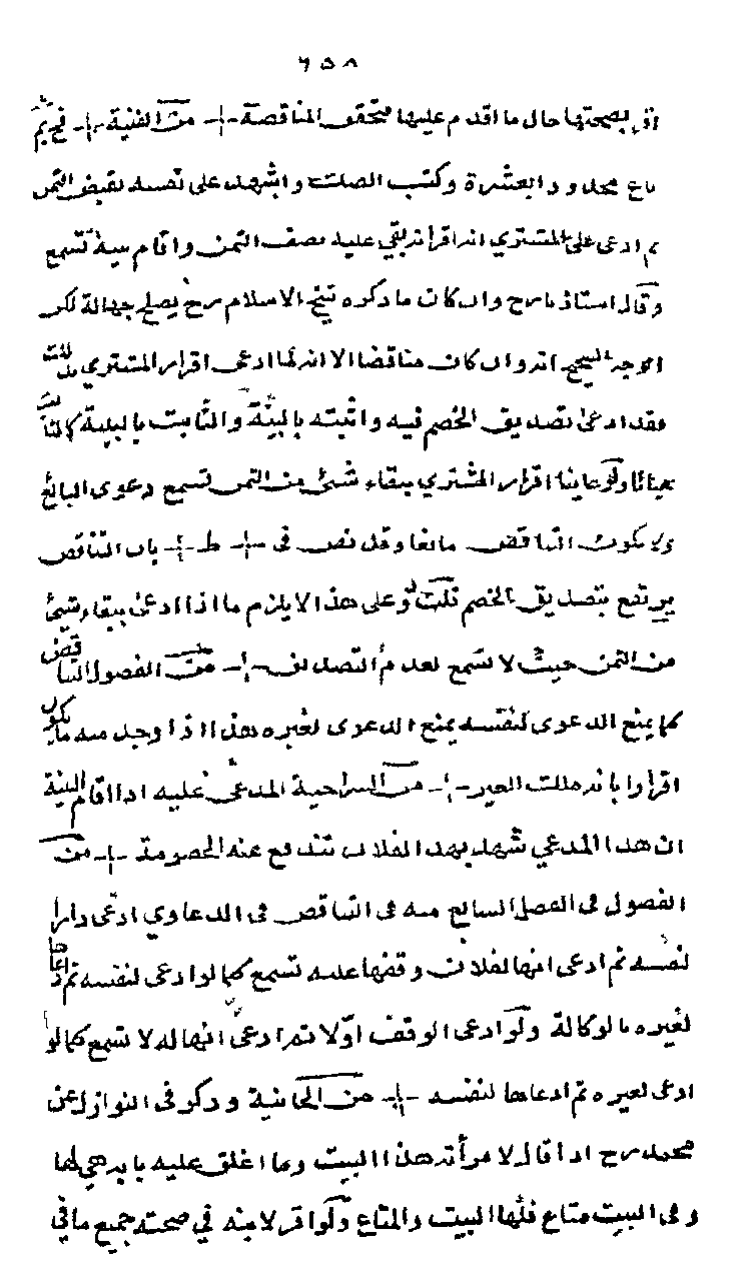 ٦٥٨
اقر بصحتها حال ما اقدم عليها فتحقق المناقصة -|- من القنية -|- فج بم
باع محدودا بعشرة وكتب الصك واشهد على نفسه بقبض الثمن
ثم ادعى على المشتري انه اقر انه بقي عليه نصف الثمن واقام بينة تسمع
وقال استاذنا رح وان كان ما ذكره شيخ الاسلام رح يصلح جهالة لكن
الوجه الصحيح انه وان كان مناقضا الا انه لما ادعى اقرار المشتري بذلك
فقد ادعى تصديق الخصم فيه واثبته بالبينة والثابت بالبينة كالثابت
عيانا ولو عاينا اقرار المشتري ببقاء شئ من الثمن تسمع دعوى البائع
ولا يكون التناقض مانعا وقد نص في -|- ط -|- بان التناقض
يرتفع بتصديق الخصم قلت وعلى هذا لا يلزم ما اذا ادعى ببقاء شئ
من الثمن حيث لا تسمع لعدم التصديق -|- من الفصول التناقض
كما يمنع الدعوى لنفسه يمنع الدعوى لغيره هذا اذا وجد منه ما يكون
اقرارا بانه ملك الغير -|- من السراجية المدعى عليه اذا اقام البينة
ان هذا المدعي شهد بهذا لفلان تندفع عنه الخصومة -|- من
الفصول في الفصل السابع منه في التناقض في الدعاوي ادعى دارا
لنفسه ثم ادعى انها لفلان وقفها عليه تسمع كما لو ادعى لنفسه ثم ادعاها
لغيره بالوكالة ولو ادعى الوقف اولا ثم ادعى انها له لا تسمع كما لو
ادعى لغيره ثم ادعاها لنفسه -|- من الخانية وذكر في النوازل عن
محمد رح اذا قال لامرأته هذا البيت وما اغلق عليه بابه هي لها
وفي البيت متاع فلها البيت والمتاع ولو اقر لابنه في صحته جميع ما في